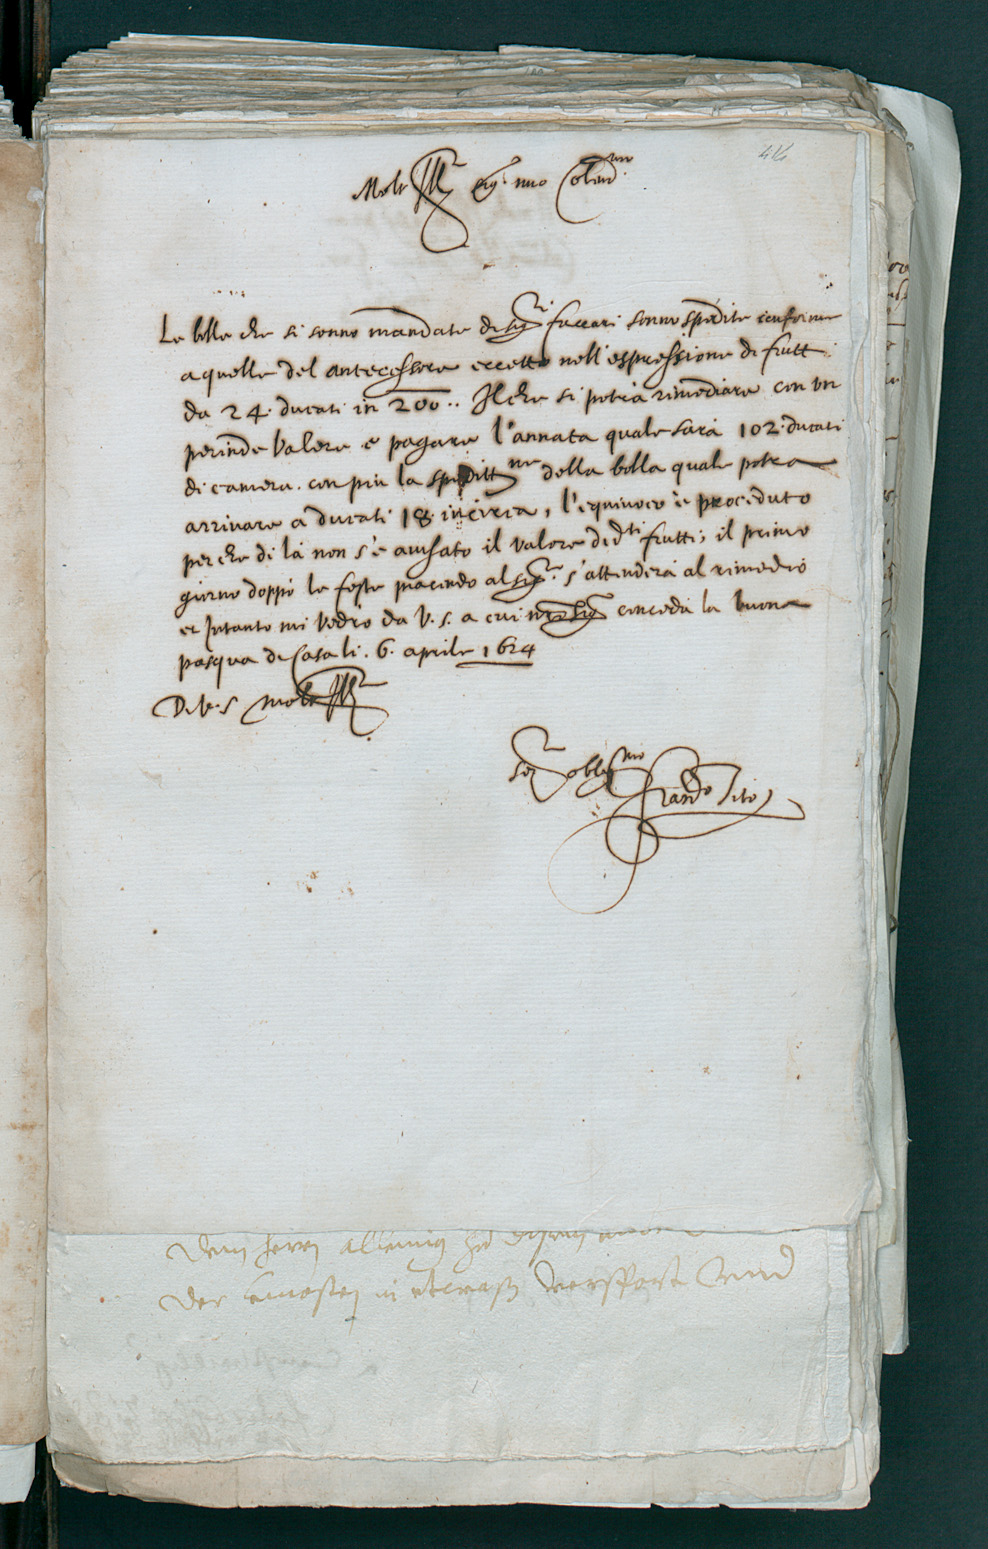 414
Molt Ill.re Sig.r mio Colend.mo
Le bolle che si sonno mandate di Sig.ri faccari sonno spedite conforme
a quelle del antecessore eccetto nell'espressione di frutt
da 24. ducati in 200.. Il che si potrà rimediare con un
perinde valere e pagare l'annata quale sarà 102. ducati
di camera. con piu la speditt.ne della bolla quale potra
arrivare a ducati 18. incirca, l'equivoco è proceduto
perche di là non s'è avisato il valore di d.ti frutti; il primo
giorno doppò le feste piacendo al Sig.r s'attenderà al rimedio
et intanto mi vedrò da V.S. a cui nro Sig.r conceda la buona
pasqua di Casa li. 6. aprile 1624
Di V.S molt Ill.re
Ser.r oblig.mo
Tito
Dem herrn
der